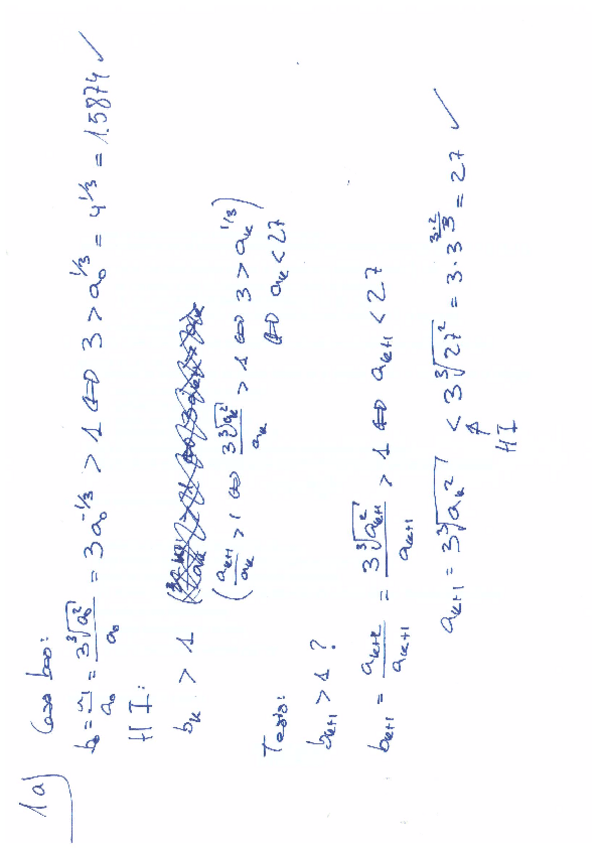 1a)
Caso base:
b₀ = a₁/a₀ = 3∛(a₀²)/a₀ = 3a₀^(-1/3) > 1 ⇔ 3 > a₀^(1/3) = 4^(1/3) = 1.5874 ✓
HI:
bₖ > 1
(aₖ₊₁/aₖ > 1 ⇔ 3∛(aₖ²)/aₖ > 1 ⇔ 3 > aₖ^(1/3))
⇔ aₖ < 27
Tesis:
bₖ₊₁ > 1 ?
bₖ₊₁ = aₖ₊₂/aₖ₊₁ = 3∛(aₖ₊₁²)/aₖ₊₁ > 1 ⇔ aₖ₊₁ < 27
aₖ₊₁ = 3∛(aₖ²) < 3∛(27²) = 3·3^(3·2/3) = 27 ✓
↑
HI